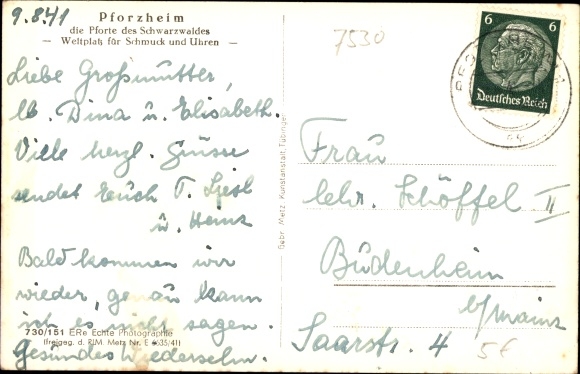 9.8.41
Pforzheim
die Pforte des Schwarzwaldes
— Weltplatz für Schmuck und Uhren —
Liebe Großmutter,
lb. Dina u. Elisabeth.
Viele herzl. Grüsse
sendet Euch T. Liesl
u. Heinz
Bald kommen wir
wieder, genau kann
ich es nicht sagen.
Gesundes Wiedersehn.
730/151 ERe Echte Photographie
(freigeg. d. RLM. Metz Nr. E 6635/41)
Gebr. Metz, Kunstanstalt, Tübingen
7530
6 6
Deutsches Reich
Frau
Schöffel II
Budenheim
b/Mainz
Saarstr. 4
5€